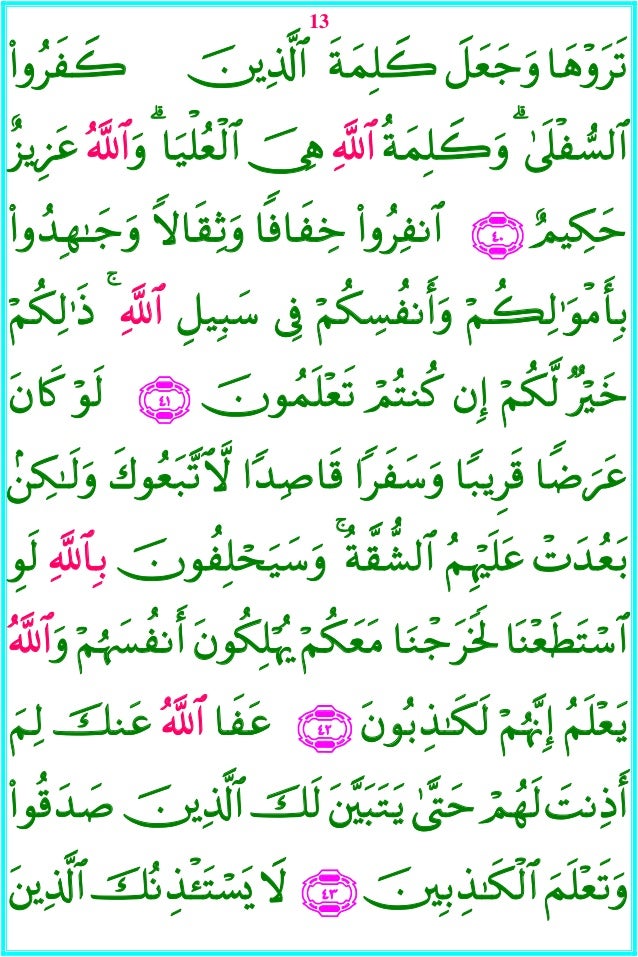 13
تَرَوْهَا وَجَعَلَ كَلِمَةَ ٱلَّذِينَ كَفَرُوا۟
ٱلسُّفْلَىٰ ۗ وَكَلِمَةُ ٱللَّهِ هِىَ ٱلْعُلْيَا ۗ وَٱللَّهُ عَزِيزٌ
حَكِيمٌ ٤٠ ٱنفِرُوا۟ خِفَافًا وَثِقَالًا وَجَـٰهِدُوا۟
بِأَمْوَٰلِكُمْ وَأَنفُسِكُمْ فِى سَبِيلِ ٱللَّهِ ۚ ذَٰلِكُمْ
خَيْرٌ لَّكُمْ إِن كُنتُمْ تَعْلَمُونَ ٤١ لَوْ كَانَ
عَرَضًا قَرِيبًا وَسَفَرًا قَاصِدًا لَّٱتَّبَعُوكَ وَلَـٰكِنۢ
بَعُدَتْ عَلَيْهِمُ ٱلشُّقَّةُ ۚ وَسَيَحْلِفُونَ بِٱللَّهِ لَوِ
ٱسْتَطَعْنَا لَخَرَجْنَا مَعَكُمْ يُهْلِكُونَ أَنفُسَهُمْ وَٱللَّهُ
يَعْلَمُ إِنَّهُمْ لَكَـٰذِبُونَ ٤٢ عَفَا ٱللَّهُ عَنكَ لِمَ
أَذِنتَ لَهُمْ حَتَّىٰ يَتَبَيَّنَ لَكَ ٱلَّذِينَ صَدَقُوا۟
وَتَعْلَمَ ٱلْكَـٰذِبِينَ ٤٣ لَا يَسْتَـْٔذِنُكَ ٱلَّذِينَ